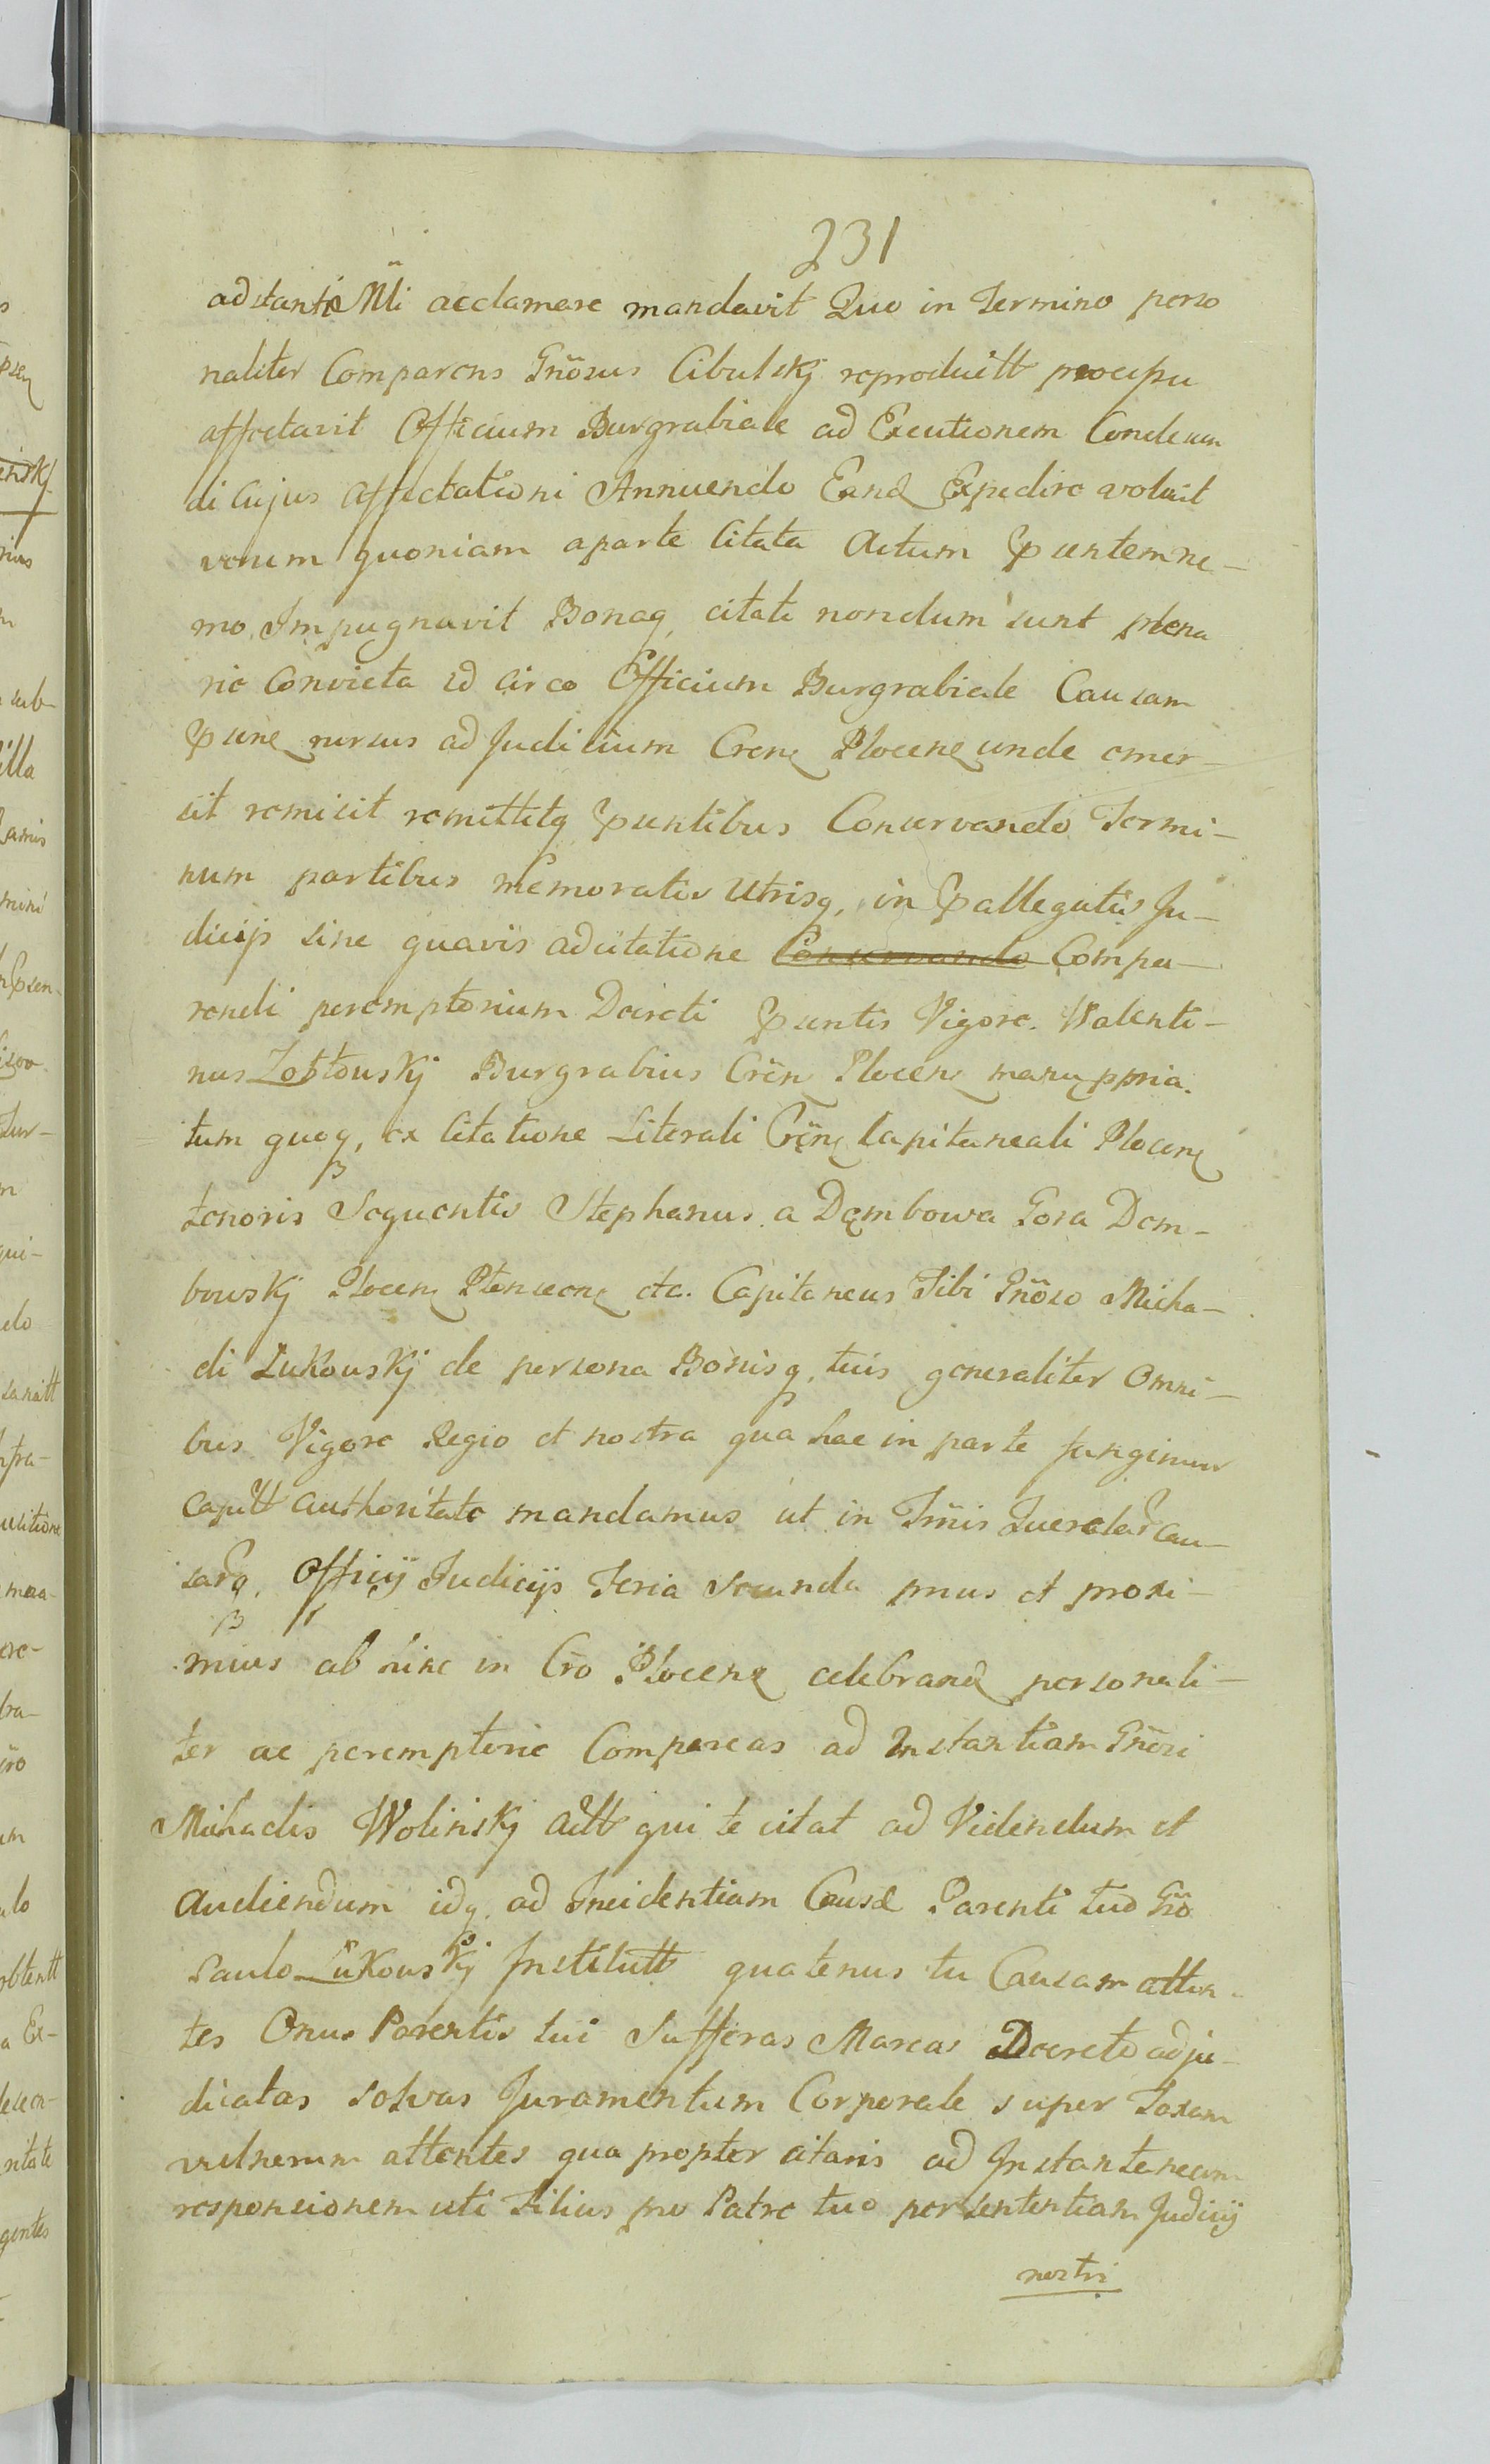 231
adstanti Mli acclamare mandavit Quo in Termino perso
naliter Comparens Gnosus Cibulskj reproduitt procepu
affectavit Officium Burgrabiale ad Excutionem Condescen
di Cujus Affectationi Annuendo Eand Expedire voluit
verum quoniam aparte Citata Actum Psentem ne-
mo Impugnavit Bonaq, citati nondum sunt plena
rie Convicta id circo Officium Burgrabiale Causam
Psune rursus ad Judicium Crene Plocene unde emer-
sit remisit remittitq Psentibus Conservando Termi-
num partibus memoratis Utrisq, in Pallegatis Ju-
dicijs sine quavis adcitatione Conservando Compa-
rendi peremptorium Decreti Psentis Vigore. Walenti-
nus Zołtowskj Burgrabius Cren Plocen manu ppria.
tum quoq, ex Citatione Literali Crene Capitaneali Plocene
tenoris Sequentis Stephanus a Dąmbowa Gora Dem-
bowskj Plocen Plonscen etc. Capitaneus Tibi Gnoso Micha-
eli Łukowskj de persona Bonisq, tuis generaliter Omni-
bus Vigore Regio et nostra qua hac in parte fungimur
Capitt authoritate mandamus ut in Tmis Querelar Cau-
sarq, Officij Judicijs Feria Secunda pmus et proxi-
mius ab hinc in Cro Plocene celebrand personali-
ter ac peremptorie Compareas ad Instantiam Gnosi
Michaelis Wolinskj Actt qui te citat ad Videndum et
Audiendum idq, ad Incidentiam Causæ Parenti tuo Gno
Paulo Łukowskj Institutt quatenus tu Causam atten-
tes Onus Parentis tui Sufferas Marcas Decreto adju-
dicatas solvas Juramentum Corporale super Taxam
vulnerum attentes qua propter citaris ad Instantaneam
responsionem uti Filius pro Patre tuo per Sententiam Judicij
nostri